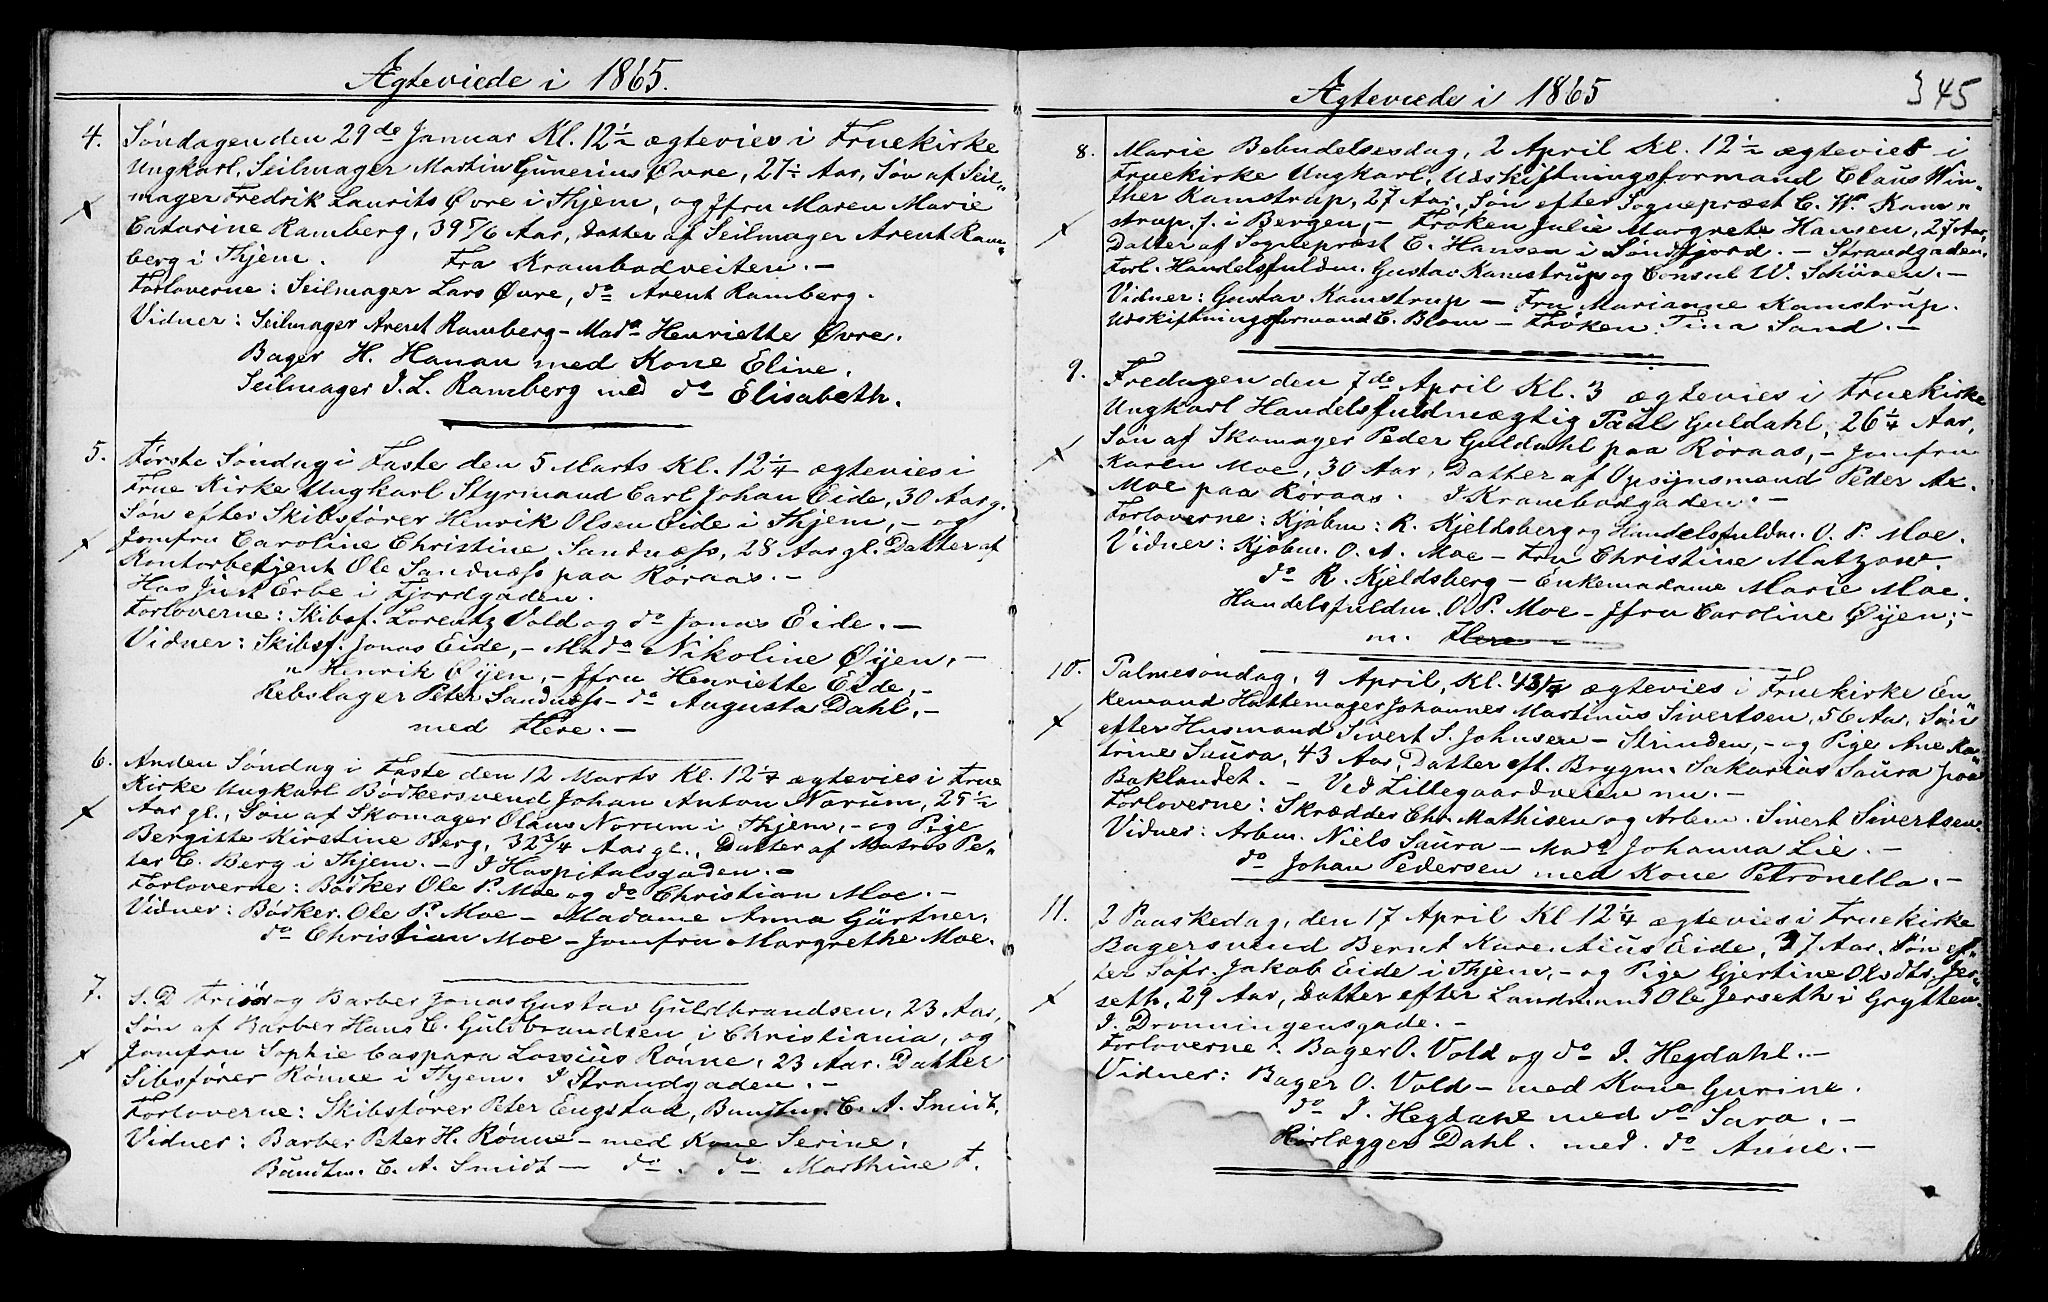 Ægteviede i 1865.
4. Søndagen den 29de Januar Kl. 12 1/2 ægtevies i Fruekirke
Ungkarl, Seilmager Martin Gunerius Øvre, 27 1/2 Aar, Søn af Seil„
mager Fredrik Laurits Øvre i Thjem, og Jfru Maren Marie
Catarine Ramberg, 39 5/6 Aar, Datter af Seilmager Arent Ram„
berg i Thjem. Fra Krambodveiten. —
Forloverne: Seilmager Lars Øvre, do Arent Ramberg.
Vidner: Seilmager Arent Ramberg — Mada Henriette Øvre.
Bager H. Hanan med Kone Eline.
Seilmager J. L. Ramberg med do Elisabeth.
5. Første Søndag i Faste den 5 Marts Kl. 12 1/4 ægtevies i
Frue Kirke Ungkarl Styrmand Carl Johan Eide, 30 Aar g.
Søn efter Skibsfører Henrik Olsen Eide i Thjem, — og
Jomfru Caroline Christine Sandnæss, 28 Aar gl. Datter af
Kontorbetjent Ole Sandnæss paa Røraas. —
Hos Just Erbe i Fjordgaden.
Forloverne: Skibsf. Lorentz Vold og do Jonas Eide. —
Vidner: Skibsf. Jonas Eide, — Mada Nikoline Øyen, —
„ Henrik Øyen, — Jfru Henriette Eide, —
Rebslager Peter Sandnæss — do Augusta Dahl, —
med Flere. —
6. Anden Søndag i Faste den 12 Marts Kl. 12 1/4 ægtevies i Frue
Kirke Ungkarl Bødkersvend Johan Anton Norum, 25 1/2
Aar gl., Søn af Skomager Olaus Norum i Thjem, — og Pige
Bergitte Kirstine Berg, 32 3/4 Aar gl., Datter af Matros Pe„
ter C. Berg i Thjem. — I Hospitalsgaden. —
Forloverne: Bødker Ole P. Moe og do Christian Moe. —
Vidner: Bødker Ole P. Moe — Madame Anna Gärtner,
do Christian Moe — Jomfru Margrethe Moe.
7. S. D Frisør og Barber Jonas Gustav Guldbrandsen, 23 Aar,
Søn af Barber Hans C. Guldbrandsen, i Christiania, og
Jomfru Sophie Caspara Lossius Rønne, 23 Aar. Datter
Sibsfører Rønne i Thjem. I Strandgaden. —
Forloverne: Skibsfører Peter Engstad, Bundtm. C. A. Smidt,
Vidner: Barber Peter H. Rønne — med Kone Serine,
Bundtm. C. A. Smidt — do. do Marthine F.
Ægteviede i 1865
345
8. Marie Bebudelsesdag, 2 April Kl. 12 1/2 ægtevies i
Fruekirke Ungkarl, Udskiftningsformand Claus Win„
ther Kamstrup, 27 Aar, Søn efter Sognepræst C. W. Kam„
strup, f. i Bergen, — Frøken Julie Margrete Hansen, 27 Aar,
Datter af Sognepræst C. Hansen i Søndfjord. — Strandgaden.
Forl. Handelsfuldm. Gustav Kamstrup og Consul W. Schüren. —
Vidner: Gustav Kamstrup — Fru Marianne Kamstrup.
Udskiftningsformand C. Blom — Frøken Tina Sand. —
9. Fredagen den 7de April Kl. 3 ægtevies i Fruekirke
Ungkarl Handelsfuldmægtig Paul Guldahl, 26 1/4 Aar,
Søn af Skomager Peder Guldahl paa Røraas, — Jomfru
Karen Moe, 30 Aar, Datter af Opsynsmand Peder Ax.
Moe paa Røraas. I Krambodgaden. —
Forloverne: Kjøbm: R. Kjeldsberg og Handelsfuldm. O. P. Moe.
Vidner: Kjøbm. O. A. Moe — Fru Christine Matzow.
do R. Kjeldsberg — Enkemadame Marie Moe.
Handelsfuldm. O. P. Moe — Jfru Caroline Øyen, —
m. Flere
10. Palmesøndag, 9 April, Kl. 43/4 ægtevies i Fruekirke En„
kemand Hattemager Johannes Martinus Sivertsen, 56 Aar, Søn
efter Husmand Sivert S. Johnsen — Strinden, — og Pige Ane Ka„
trine Saura, 43 Aar, Datter eft. Brygm. Sakarias Saura paa
Baklandet. — Ved Lillegaardveien nu. —
Forloverne: Skrædder Chr. Mathisen og Arbm. Sivert Sivertsen.
Vidner: Arbm. Niels Saura — Mada Johanna Lie. —
do Johan Pedersen med Kone Petronella. —
11. 2 Paaskedag, den 17 April Kl 12 1/4 ægtevies i Fruekirke
Bagersvend Bernt Kare Aius Eide, 37 Aar, Søn ef„
ter Søfr. Jakob Eide i Thjem, — og Pige Gjertine Olsdtr. Jer„
seth, 29 Aar, Datter efter Landmand Ole Jerseth i Grytten.
I. Dronningensgade. —
Forloverne: Bager O. Vold og do I. Hegdahl. —
Vidner: Bager O. Vold — med Kone Gurine.
do I. Hegdahl med do Sara. —
Rørlægger Dahl. med. do Anne. —